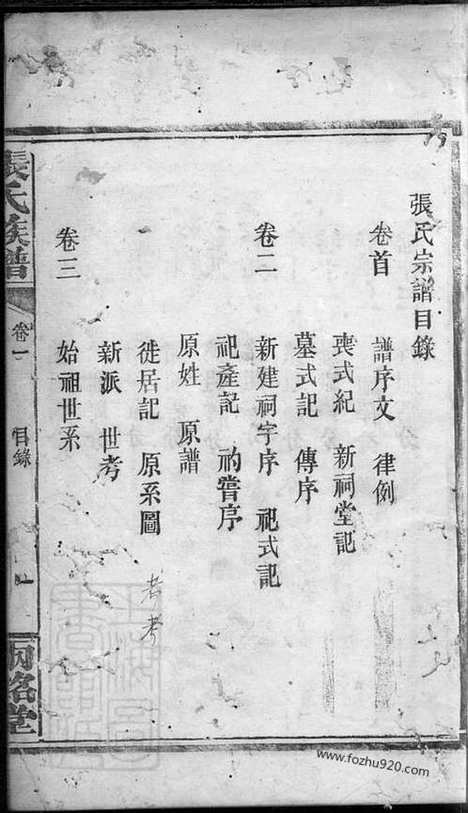 張氏宗譜目錄
卷首 譜序文 律例
喪式紀 新祠堂記
墓式記 傳序
卷二 新建祠宇序 祀式記
祀產記 祠嘗序
原姓 原譜
徙居記 原系圖
新派 世考
卷三 始祖世系
張氏族譜 卷一 目錄
www.fozhu920.com